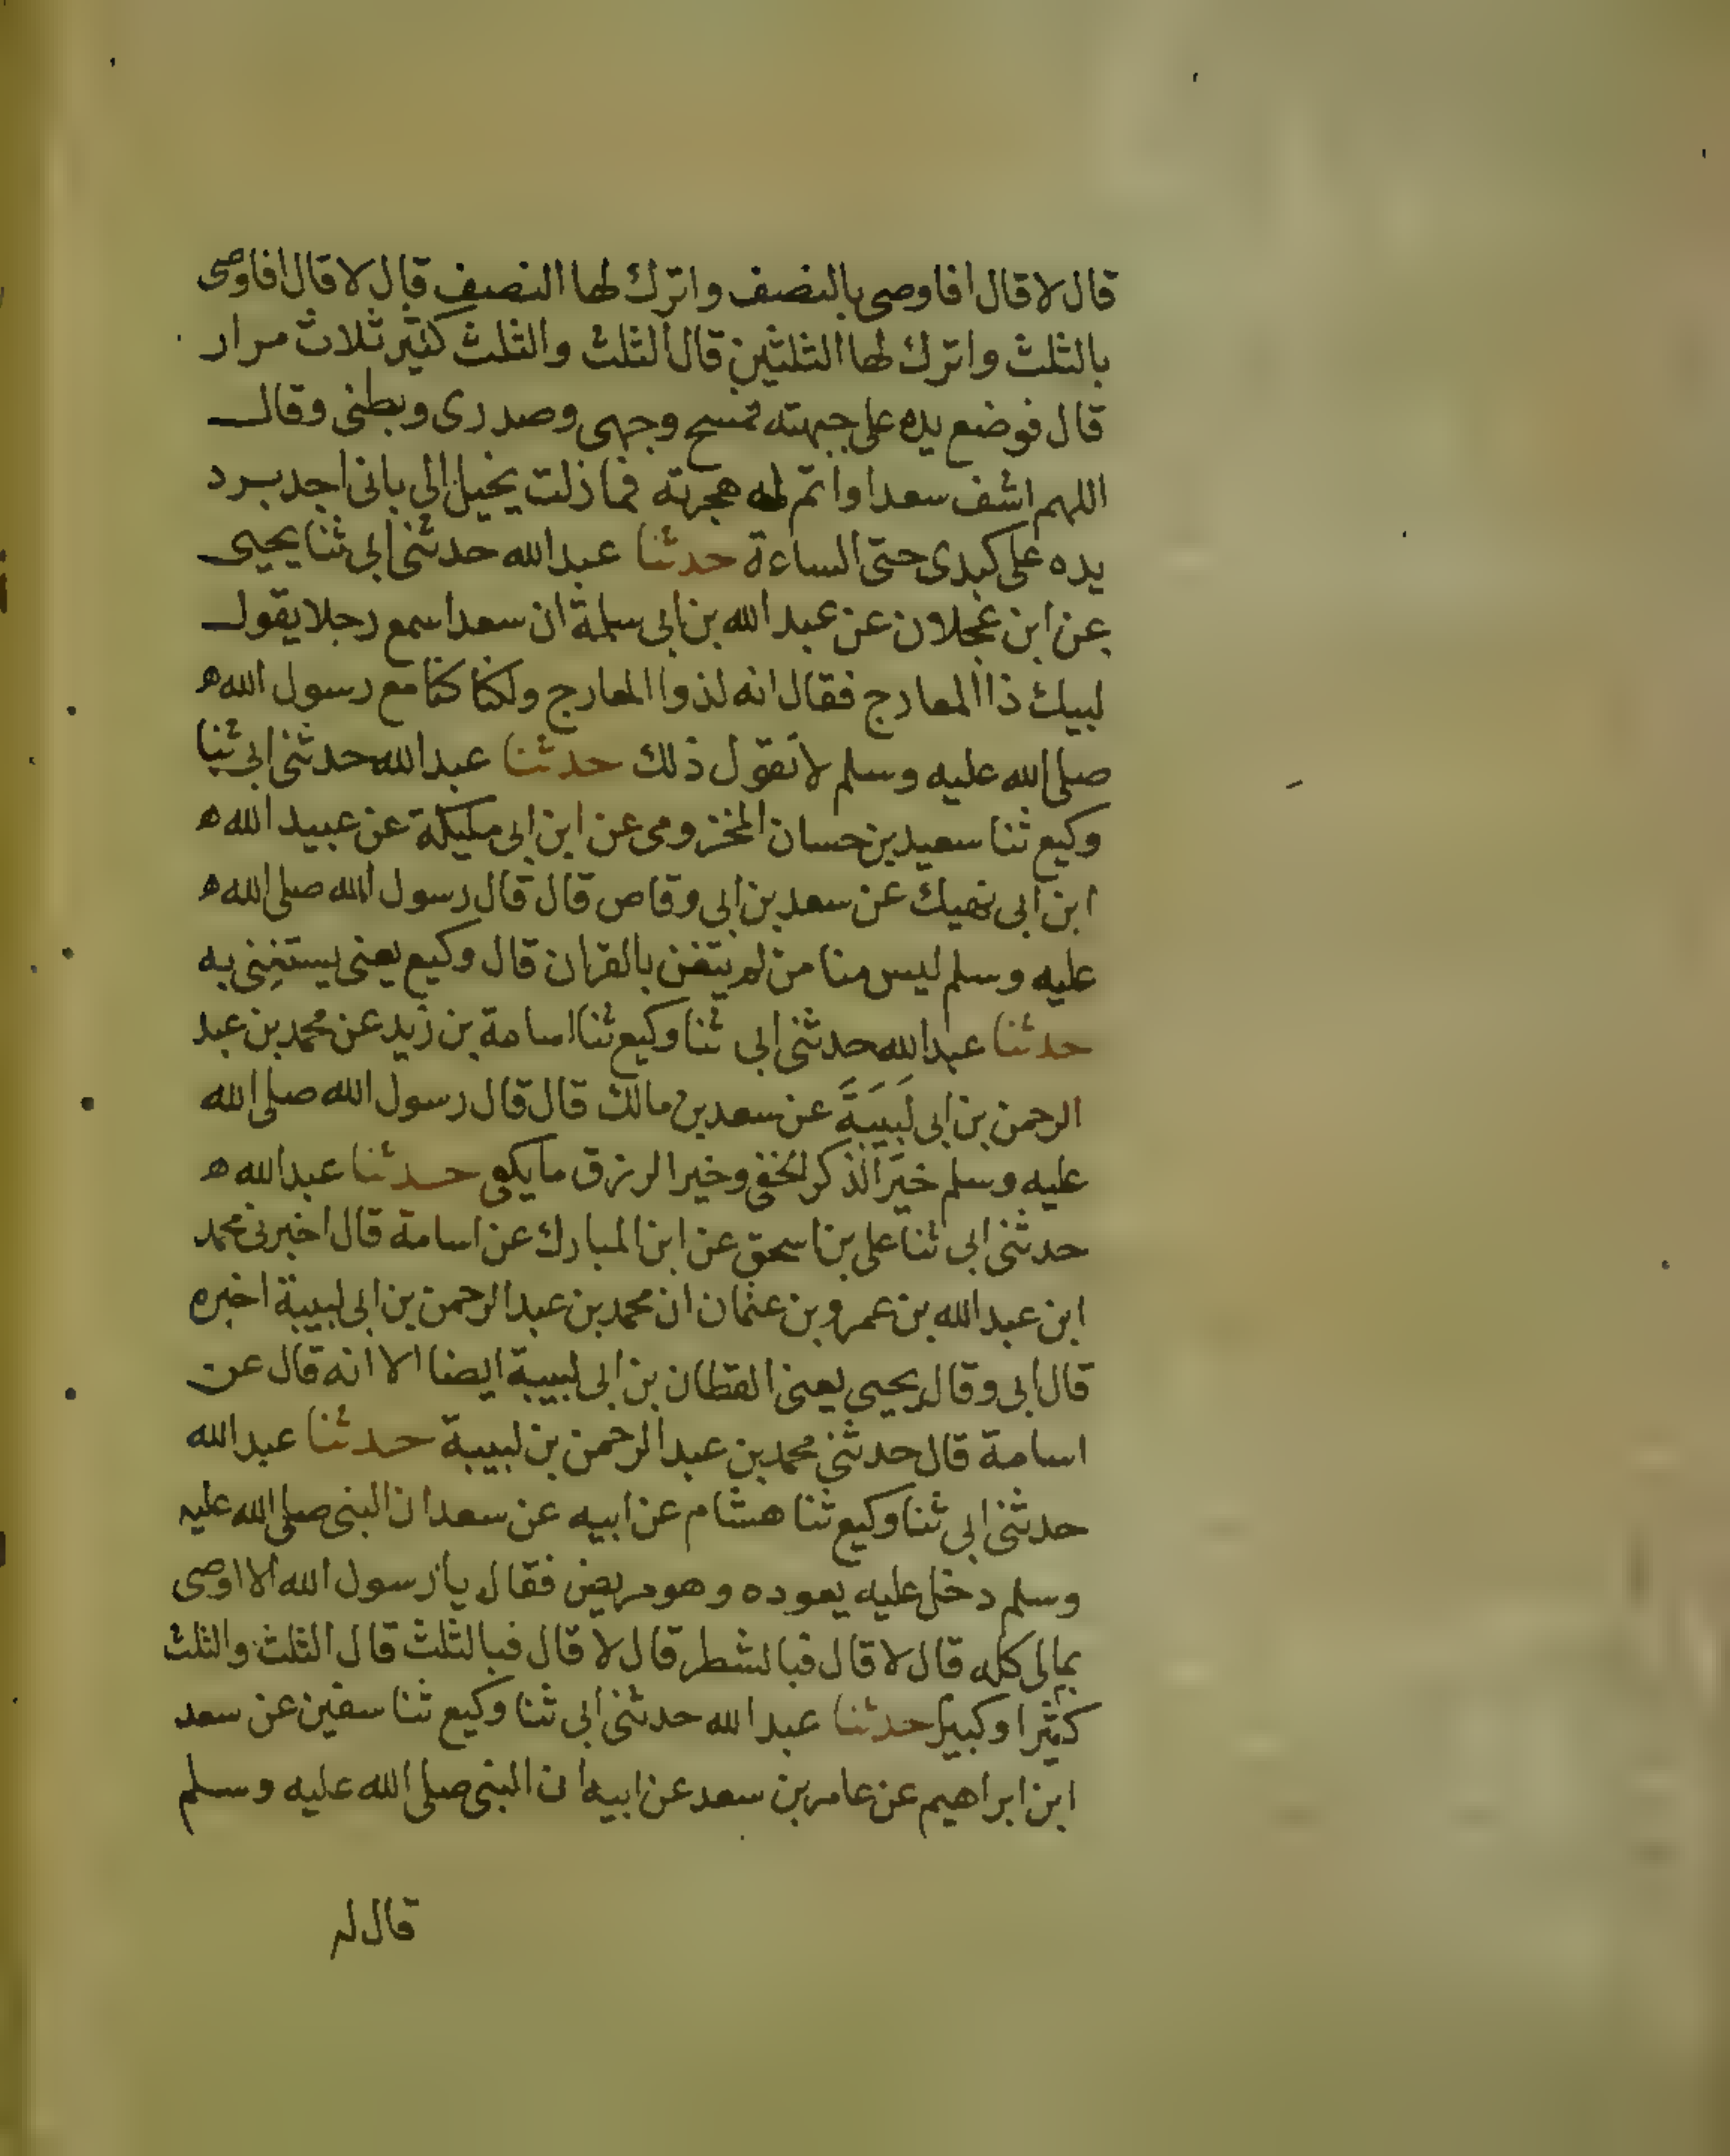 قال لا قال افاوصى بالنصف واترك لها النصف قال لا قال افاوصى
بالثلث واترك لها الثلثين قال الثلث والثلث كثير ثلاث مرار
قال فوضع يده على جبهته تمسح وجهى وصدرى وبطنى وقال
اللهم اشف سعدا واتم له هجرته فما زلت يخيل الى بانى اجد برد
يده على كبدى حتى الساعة حدثنا عبد الله حدثنى ابى ثنا يحيى
عن ابن عجلان عن عبد الله بن ابى سلمة ان سعدا سمع رجلا يقول
لبيك ذا المعارج فقال انه لذوا المعارج ولكنا كنا مع رسول الله ه
صلى الله عليه وسلم لا نقول ذلك حدثنا عبد الله حدثنى ابى ثنا
وكيع ثنا سعيد بن حسان المخزومى عن ابن ابى مليكة عن عبيد الله ه
ابن ابى نهيك عن سعد بن ابى وقاص قال قال رسول الله صلى الله ه
عليه وسلم ليس منا من لم يتغن بالقران قال وكيع يعنى يستغنى به
حدثنا عبد الله حدثنى ابى ثنا وكيع ثنا اسامة بن زيد عن محمد بن عبد
الرحمن بن ابى لَبِيبَةَ عن سعد بن مالك قال قال رسول الله صلى الله
عليه وسلم خير الذكر الخفى وخير الرزق ما يكفى حدثنا عبد الله ه
حدثنى ابى ثنا على بن اسحق عن ابن المبارك عن اسامة قال اخبرنى محمد
ابن عبد الله بن عمرو بن عثمان ان محمد بن عبد الرحمن بن ابى لبيبة اخبره
قال ابى وقال يحيى يعنى القطان بن ابى لبيبة ايضا الا انه قال عن
اسامة قال حدثنى محمد بن عبد الرحمن بن لبيبة حدثنا عبد الله
حدثنى ابى ثنا وكيع ثنا هشام عن ابيه عن سعد ان النبى صلى الله عليه
وسلم دخل عليه يعوده وهو مريض فقال يا رسول الله الا اوصى
بمالى كله قال لا قال فبالشطر قال لا قال فبالثلث قال الثلث والثلث
كثيرا وكبيرا حدثنا عبد الله حدثنى ابى ثنا وكيع ثنا سفين عن سعد
ابن ابراهيم عن عامر بن سعد عن ابيه ان النبى صلى الله عليه وسلم
قال له